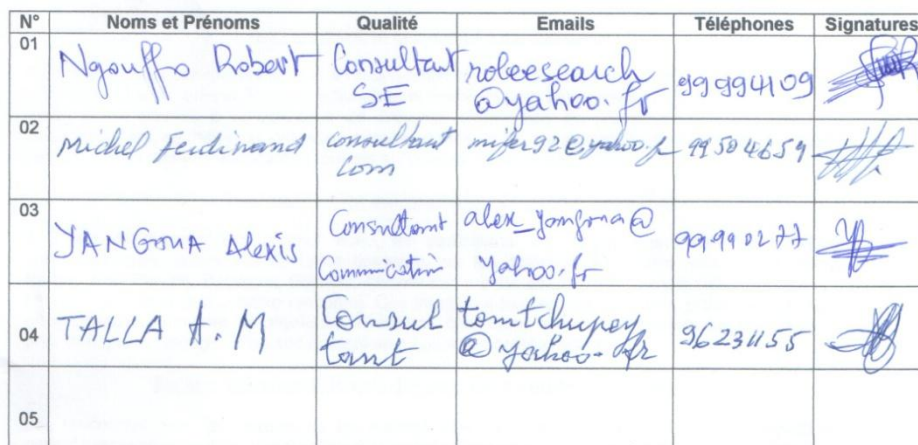 N° Noms et Prénoms Qualité Emails Téléphones Signatures
01 Ngouffo Robert Consultant SE robeesearch@yahoo.fr 99994109
02 Michel Ferdinand consultant com mifer92@yahoo.fr 99504659
03 YANGOUA Alexis Consultant Communication alex_yangoua@yahoo.fr 99990277
04 TALLA A. M Consultant tomtchupey@yahoo.fr
05